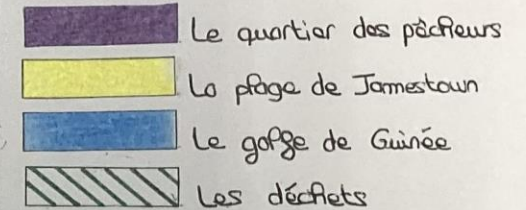 Le quartier des pêcheurs
La plage de Jamestown
Le golfe de Guinée
Les déchets